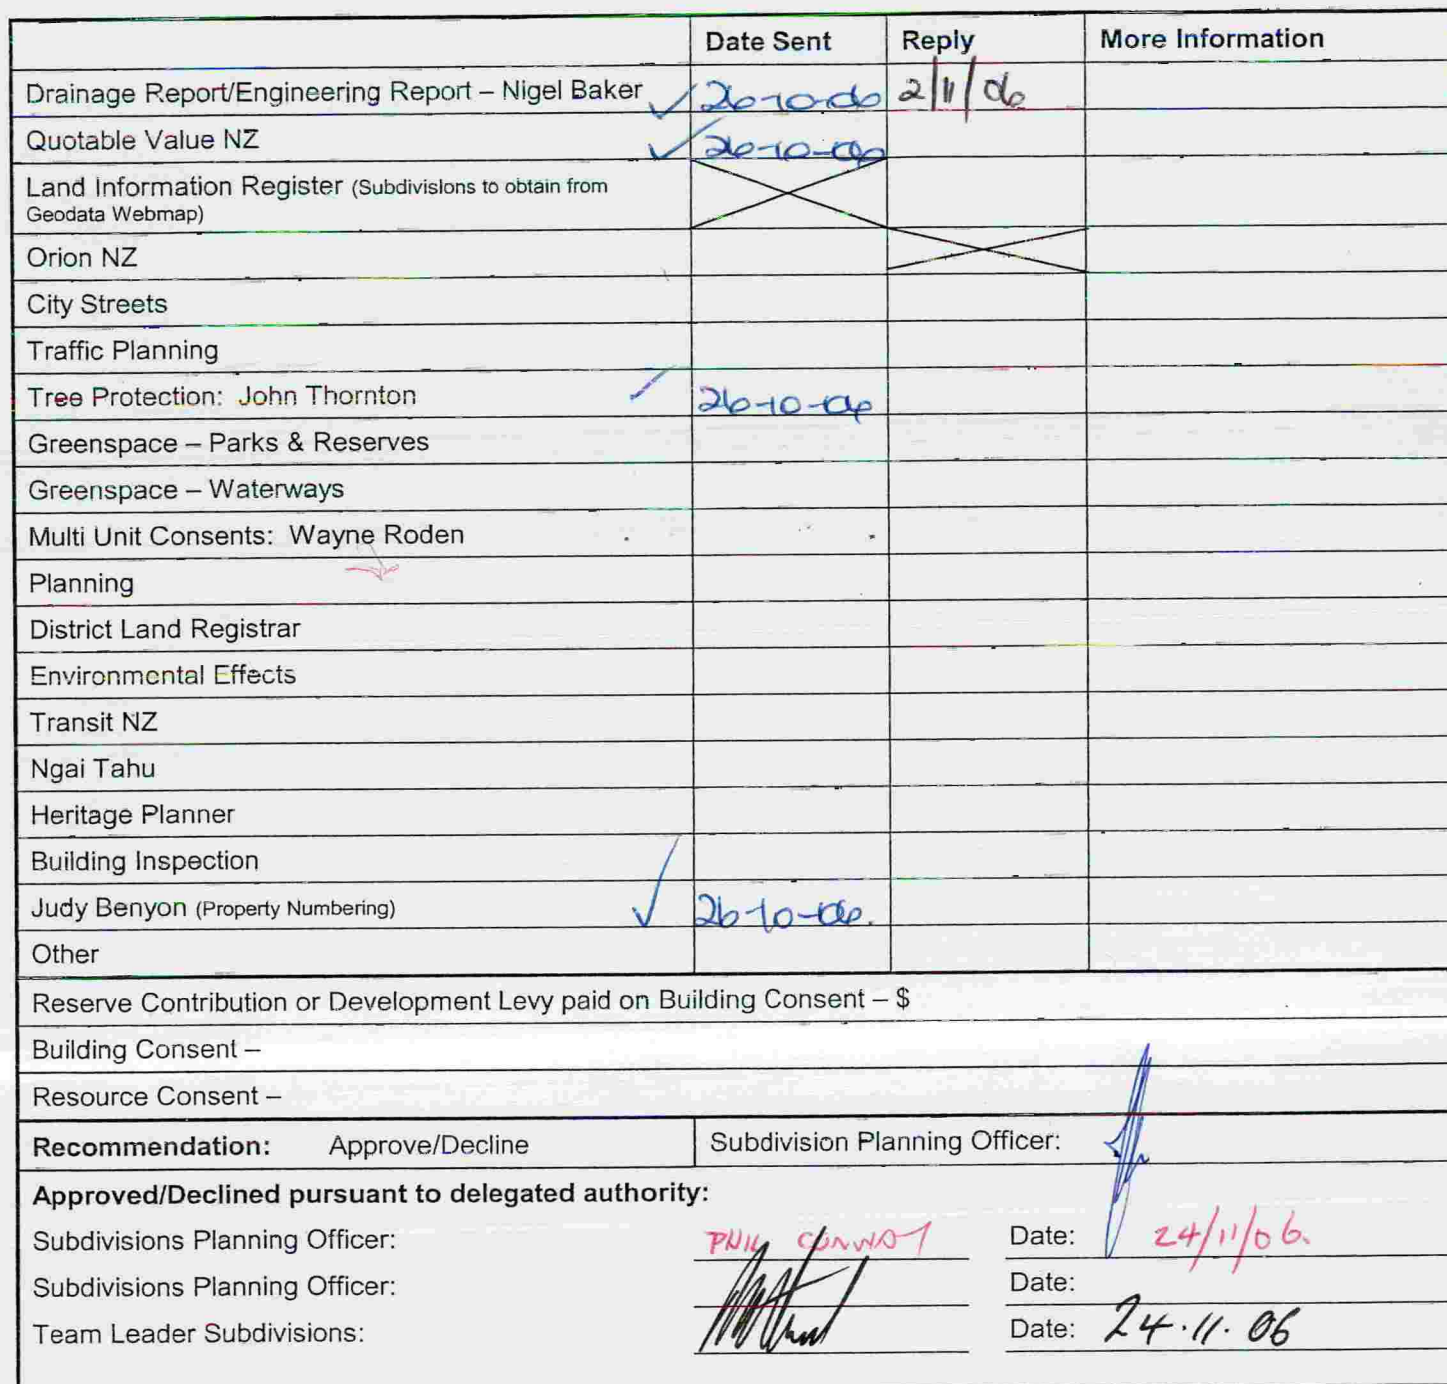 Date Sent Reply More Information
Drainage Report/Engineering Report – Nigel Baker 26-10-06 2/11/06
Quotable Value NZ 26-10-06
Land Information Register (Subdivisions to obtain from
Geodata Webmap)
Orion NZ
City Streets
Traffic Planning
Tree Protection: John Thornton 26-10-06
Greenspace – Parks & Reserves
Greenspace – Waterways
Multi Unit Consents: Wayne Roden
Planning
District Land Registrar
Environmental Effects
Transit NZ
Ngai Tahu
Heritage Planner
Building Inspection
Judy Benyon (Property Numbering) 26-10-06.
Other
Reserve Contribution or Development Levy paid on Building Consent – $
Building Consent –
Resource Consent –
Recommendation: Approve/Decline Subdivision Planning Officer:
Approved/Declined pursuant to delegated authority:
Subdivisions Planning Officer: PHIL CONWAY Date: 24/11/06.
Subdivisions Planning Officer: Date:
Team Leader Subdivisions: Date: 24.11.06